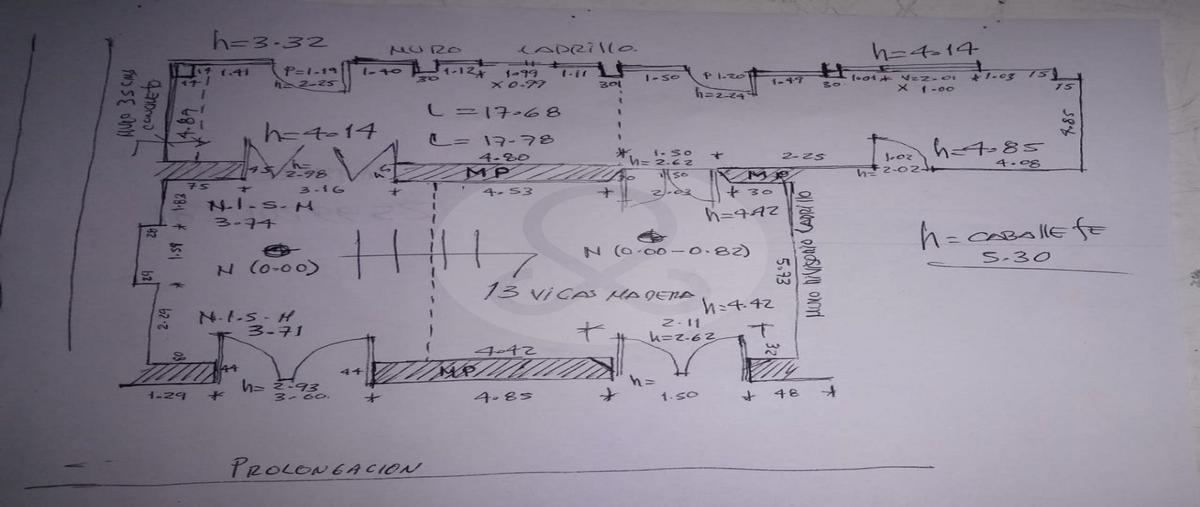 h=3.32
MURO LADRILLO
h=4.14
1.41
P=1.19
h=2.25
1.40
30
1.12
1.99
X 0.97
1.11
30
1.50
P 1.20
h=2.24
1.49
30
1.01
V=2.01
X 1.00
1.03
15
15
4.89
L = 17.68
L = 17.78
4.85
h=4.14
4.80
1.50
h=2.62
2.25
1.02
h=2.02
h=4.85
4.08
MP
MP
75
h=
2.98
3.16
4.53
2.03
30
1.83
N.I.S.H
3.74
h=4.42
1.59
29
N (0.00)
N (0.00-0.82)
5.73
MURO INVERSO LADRILLO
h= CABALLETE
5.30
13 VIGAS MADERA
h=4.42
2.29
N.I.S.H
3.71
2.11
h=2.62
32
80
44
h= 2.93
3.60
44
4.42
MP
h=
1.29
4.85
1.50
48
PROLONGACION